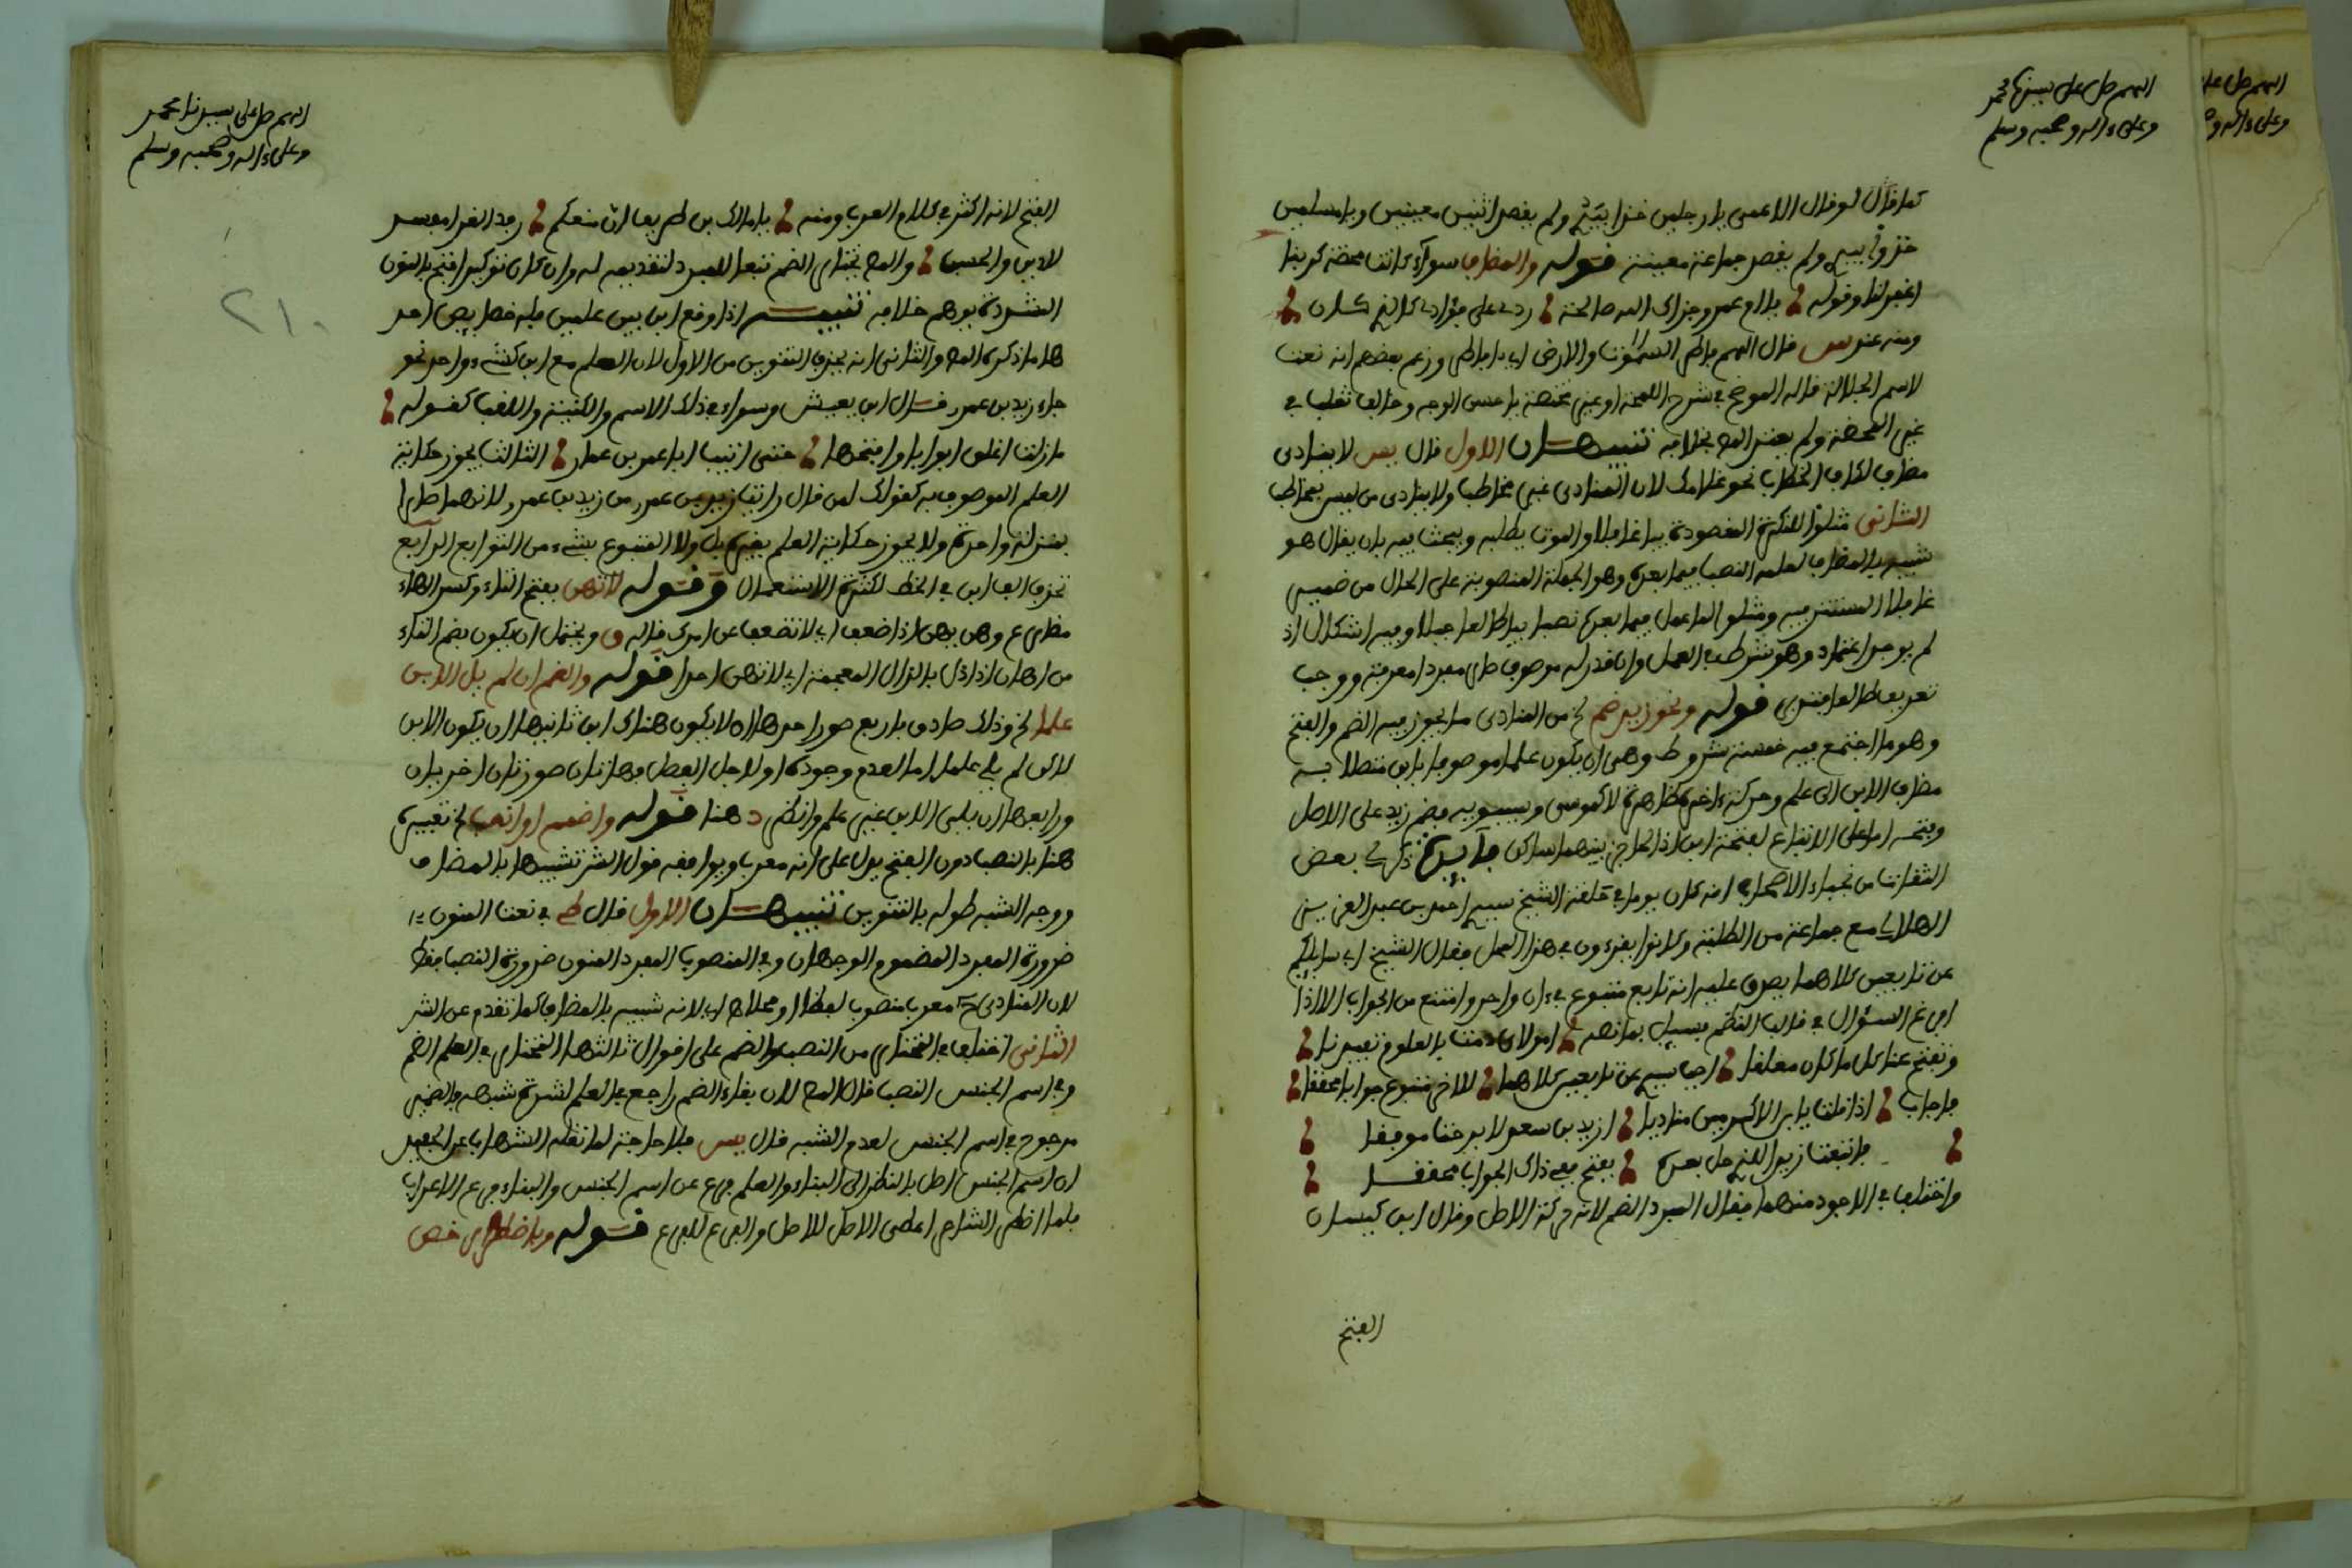 اللهم صل على سيدنا محمد
وعلى ءاله وصحبه وسلم
كما قال لو قال الاعمى يا رجلين خذا بيدي ولم يقصد اثنين معينين ويا مسلمين
خذوا بيدي ولم يقصد جماعة معينة قوله والمضاف سواء كانت محضة كربنا
اغفر لنا وقوله يا ام عمرو جزاك الله صالحة ردي علي فؤادي كالذي كان
ومنه عند س قال اللهم فاطر السموات والارض اي يا فاطر وزعم بعضهم انه نعت
لاسم الجلالة قاله الموضح في شرح اللمحة او غير محضة يا حسن الوجه وخالف ثعلب في
غير المحضة ولم يعتبر المص خلافه تنبيهان الاول قال يس لا ينادى
مضاف لكاف الخطاب نحو غلامك لان المنادى غير مخاطب ولا ينادى من ليس بمخاطب
الثاني مثلوا للنكرة المقصودة بيا غافلا والموت يطلبه ويبحث فيه بان يقال هو
شبيه بالمضاف لعلمه النصب فيما بعده وهو الجملة المنصوبة على الحال من ضمير
غافلا المستتر فيه ومثلوا لما عمل فيما بعده نصبا بيا طالعا جبلا وفيه اشكال اذ
لم يوجد اعتماد وهو شرط في العمل وان قدر له موصوف صار مفردا معرفة ووجب
تعريف طالعا فتدبر قوله ونحو زيد ضم الخ من المنادى ما يجوز فيه الضم والفتح
وهو ما اجتمع فيه خمسة شروط وهي ان يكون علما موصوفا بابن متصلا به
مضاف الابن الى علم وحركة ءاخره ظاهرة لا كموسى وسيبويه فضم زيد على الاصل
وفتحه اما على الاتباع لفتحة ابن اذ الحاجز بينهما ساكن فايدة ذكر لي بعض
الثقات من نجباء الاصحاب انه كان يوما في حلقة الشيخ سيدي احمد بن عبد العزيز
الهلالي مع جماعة من الطلبة وكانوا يقرءون في هذا المحل فقال الشيخ اي سايلكم
عن تابعين كلاهما يصدق عليه انه تابع متبوع في ءان واحد وامتنع من الجواب الا اذا
افرغ السؤال في قالب النظم فسيل بما نصه امولاي دمت بالعلوم تفيدنا
وتفتح عنا كل ما كان مغلقا اجب سيدي عن تابعين كلاهما لاخر متبوع جوابا محققا
فاجاب اذا قلت يا بن الاكرمين مناديا ازيد بن سعد لا برحت موفقا
فاتبعت زيدا لفتح حل بعده بفتح ففي ذاك الجواب محققا
واختلف في الاجود منهما فقال المبرد الضم لانه حركة الاصل وقال ابن كيسان
الفتح
اللهم صل على سيدنا محمد
وعلى ءاله وصحبه وسلم
٢١٠
الفتح لانه اكثر في كلام العرب ومنه
لابن والحسن والمص يختار الضم تبعا للمبرد لتقديمه له وان كان توكيد افتح بالنون
الشديدة يوهم خلافه تنبيه اذا وقع ابن بين علمين فله خصايص احد
ها ما ذكره المص والثاني انه يحذف التنوين من الاول لان العلم مع ابن كشيء واحد نحو
جاء زيد بن عمرو قال ابن يعيش وسواء في ذلك الاسم والكنية واللقب كقوله
ما زلت اغلق ابوابا وافتحها حتى اتيت ابا عمرو بن عمار الثالث يجوز حكاية
العلم الموصوف به كقولك لمن قال رايت زيد بن عمرو من زيد بن عمرو لانهما صارا
بمنزلة واحدة ولا يجوز حكاية العلم المتبوع بشيء من التوابع الرابع
تحذف الف ابن في الخط لكثرة الاستعمال وقوله لا تهن بفتح التاء وكسر الهاء
مضارع وهن يهن اذا ضعف اي لا تضعف عن امرك قاله ق ويحتمل ان يكون بضم التاء
من اهان اذا اذل بالذال المعجمة اي لا تهن احدا قوله والضم ان لم يل الابن
علما الخ وذلك صادق باربع صور احدها ان لا يكون هناك ابن ثانيها ان يكون الابن
لاكن لم يل علما اما لعدم وجوده او لاجل الفصل فهاتان صورتان اخريان
ورابعها ان يلي الابن غير علم وانظر د هنا قوله واضمم او انصب الخ تعبيره
هنا بالنصب دون الفتح يدل على انه معرب ويوافقه قول الش تشبيها بالمضاف
ووجه الشبه طوله بالتنوين تنبيهان الاول قال ط في نعت المنون
ضرورة المفرد المضموم الوجهان وفي المنصوب المفرد المنون ضرورة النصب فقط
لان المنادى ح معرب منصوب لفظا ومحلا اي لانه شبيه بالمضاف كما تقدم عن الش
الثاني اختلف في المختار من النصب والضم على اقوال ثالثها المختار في العلم الضم
وفي اسم الجنس النصب قال المص لان بقاء الضم راجع في العلم لشدة شبهه بالضمير
مرجوح في اسم الجنس لعدم الشبه قال يس فلا حاجة لما نقله الشهاب عن الحفيد
ان اسم الجنس اصل بالنظر الى البناء والعلم فرع عن اسم الجنس والبناء فرع الاعراب
فلما اضطر الشاعر اعطى الاصل للاصل والفرع للفرع قوله وباضطرار خص